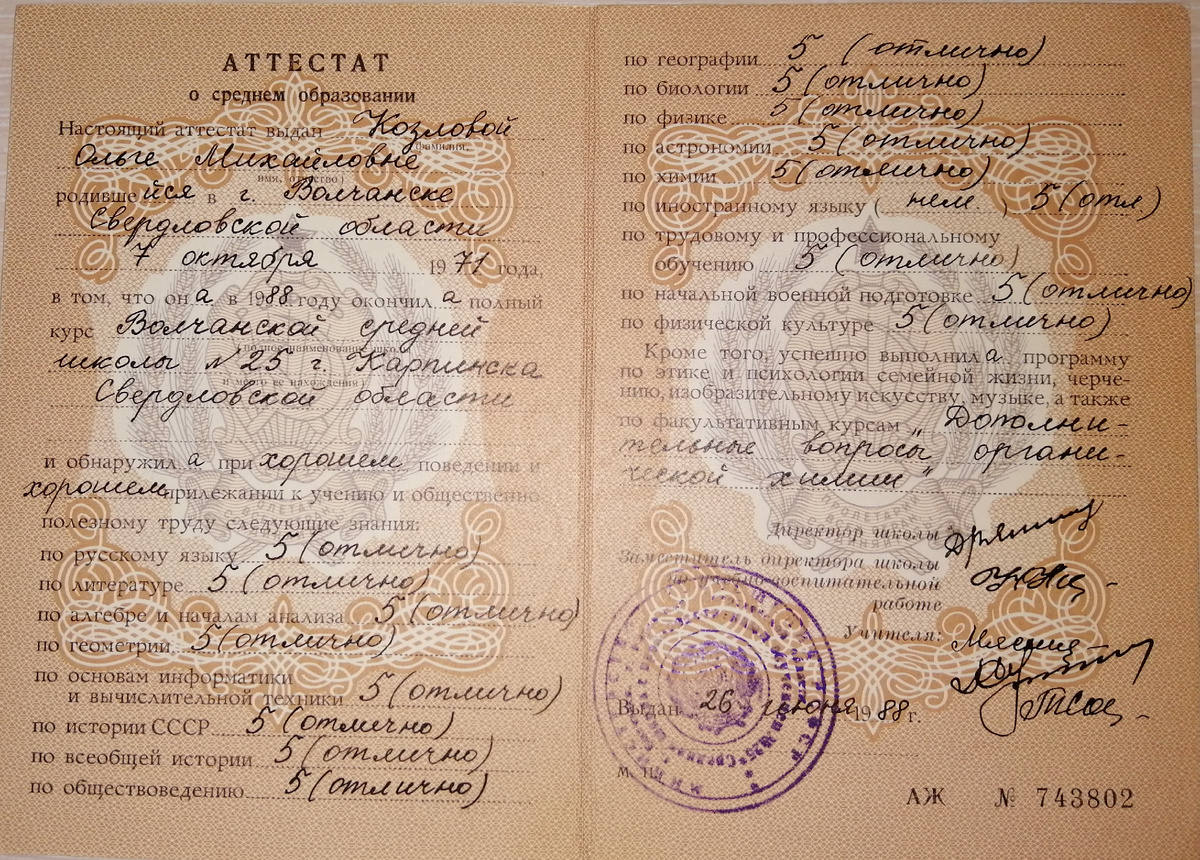 АТТЕСТАТ
о среднем образовании
Настоящий аттестат выдан Козловой
(фамилия,
Ольге Михайловне
имя, отчество)
родившейся в г. Волчанске
Свердловской области
7 октября 1971 года,
в том, что она в 1988 году окончила полный
курс Волчанской средней
(полное наименование школы
школы №25 г. Карпинска
и место ее нахождения)
Свердловской области
и обнаружила при хорошем поведении и
хорошем прилежании к учению и общественно
полезному труду следующие знания:
по русскому языку 5 (отлично)
по литературе 5 (отлично)
по алгебре и началам анализа 5 (отлично)
по геометрии 5 (отлично)
по основам информатики
и вычислительной техники 5 (отлично)
по истории СССР 5 (отлично)
по всеобщей истории 5 (отлично)
по обществоведению 5 (отлично)
по географии 5 (отлично)
по биологии 5 (отлично)
по физике 5 (отлично)
по астрономии 5 (отлично)
по химии 5 (отлично)
по иностранному языку ( нем ) 5 (отл.)
по трудовому и профессиональному
обучению 5 (отлично)
по начальной военной подготовке 5 (отлично)
по физической культуре 5 (отлично)
Кроме того, успешно выполнила программу
по этике и психологии семейной жизни, черче-
нию, изобразительному искусству, музыке, а также
по факультативным курсам „Дополни-
тельные вопросы органи-
ческой химии"
Директор школы
Заместитель директора школы
по учебно-воспитательной
работе
Учителя:
Выдан 26 июня 1988 г.
М. П.
АЖ № 743802